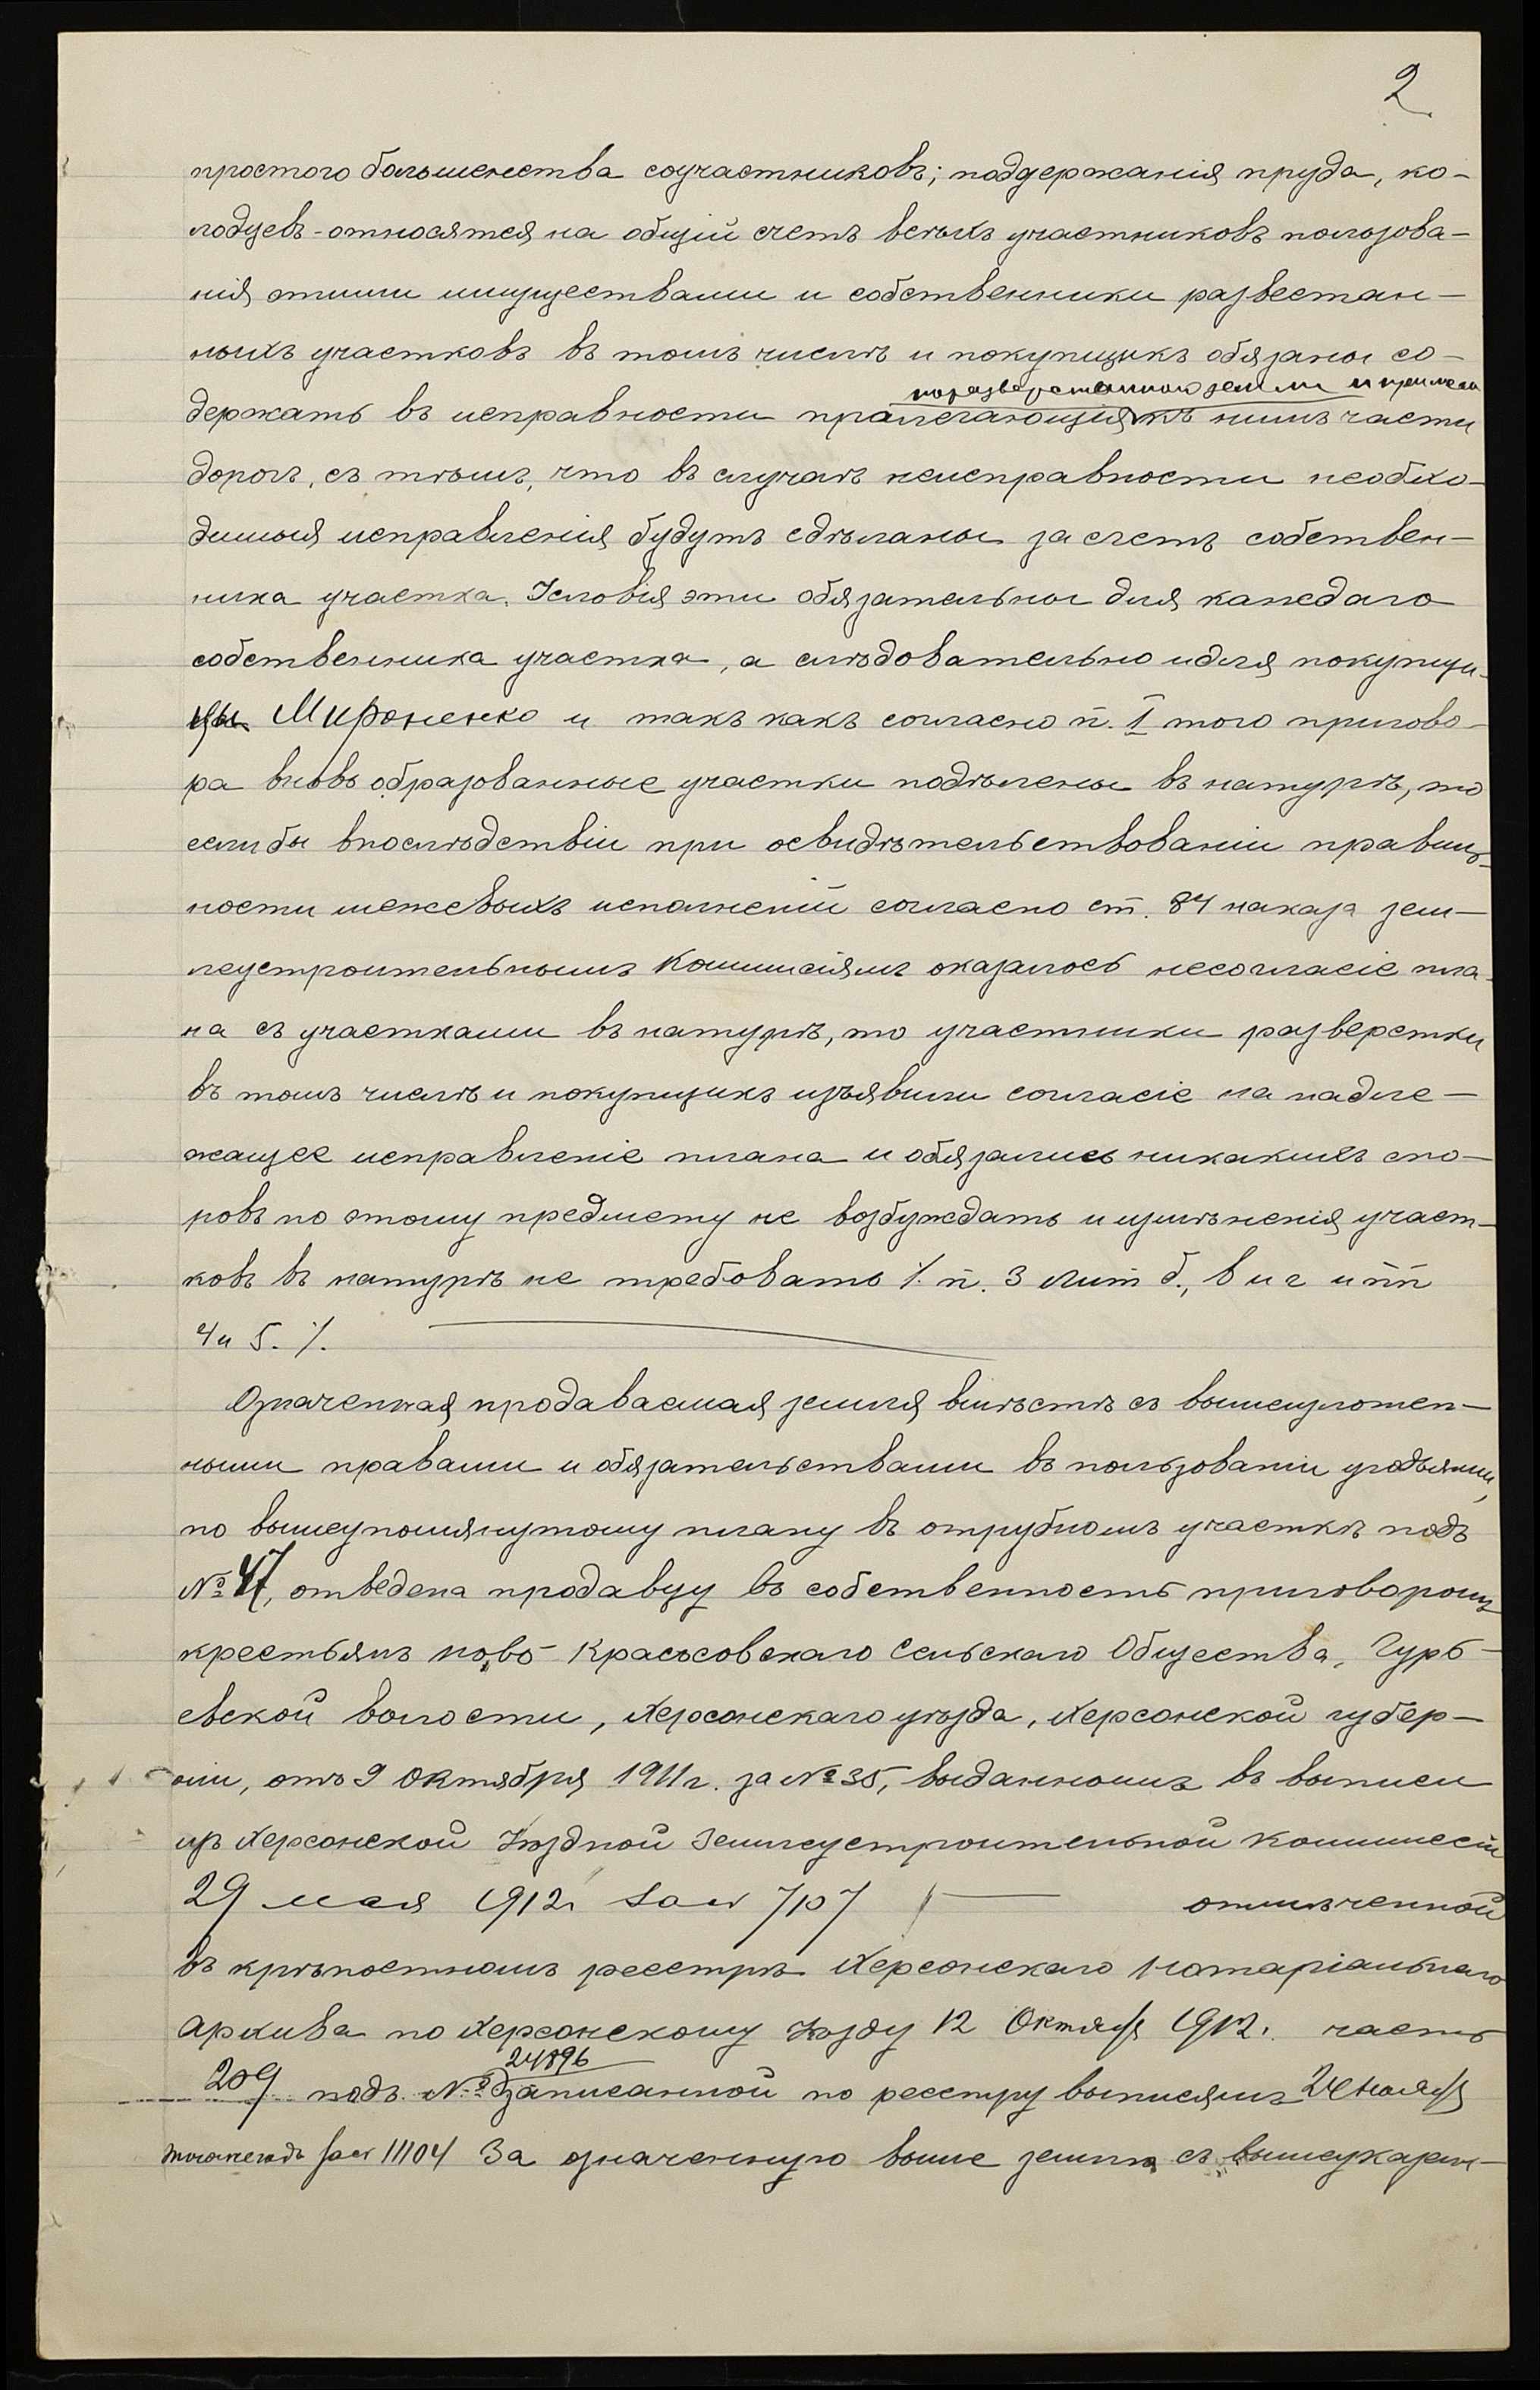 2
простого большенства соучастниковъ; поддержанія пруда, ко-
лодцевъ - относятся на общій счетъ всѣхъ участниковъ пользова-
нія этими имуществами и собственники разверстан-
ныхъ участковъ въ томъ числѣ и покупщикъ обязаны со-
по разверстанной земли и прилега
держать въ исправности пралегающія къ нимъ части
дорогъ, съ тѣмъ, что въ случаѣ неисправности необхо-
димыя исправленія будутъ сдѣланы за счетъ собствен-
ника участка. Условія эти обязательны для каждаго
собственника участка, а слѣдовательно и для покупщи-
цы Мироненко и такъ какъ согласно п. I того пригово-
ра вновь образованные участки подѣлены въ натурѣ, то
если бы впослѣдствіи при освидѣтельствованіи правиль-
ности межевыхъ исполненій согласно ст. 84 наказа зем-
леустроительнымъ Коммисіямъ оказалось несогласіе пла-
на съ участками въ натурѣ, то участники разверстки
въ томъ числѣ и покупщикъ изъявили согласіе на надле-
жащее исправленіе плана и обязались никакихъ спо-
ровъ по этому предмету не возбуждать и измѣненія участ-
ковъ въ натурѣ не требовать /. п. 3 лит б., в и г и пп
4 и 5. /.
Означенная продаваемая земля вмѣстѣ съ вышеизложен-
ными правами и обязательствами въ пользованіи угодьями,
по вышеупомянутому плану въ отрубномъ участкѣ подъ
№ 47, отведена продавцу въ собственность приговоромъ
крестьянъ ново-Красовскаго Сельскаго Общества, Гурь-
евской волости, Херсонскаго уѣзда, Херсонской губер-
ніи, отъ 9 Октября 1911 г. за № 35, выданномъ въ выписи
изъ Херсонской Уѣздной Землеустроительной Коммиссіи
29 мая 1912 г за № 707 отмѣченной
въ крѣпостномъ реестрѣ Херсонскаго Нотаріальнаго
Архива по Херсонскому Уѣзду 12 Октября 1912 г. часть
24896
209 подъ № записанной по реестру выписямъ 24 Ноября
за № 11104 За означенную выше землю съ вышеуказан-